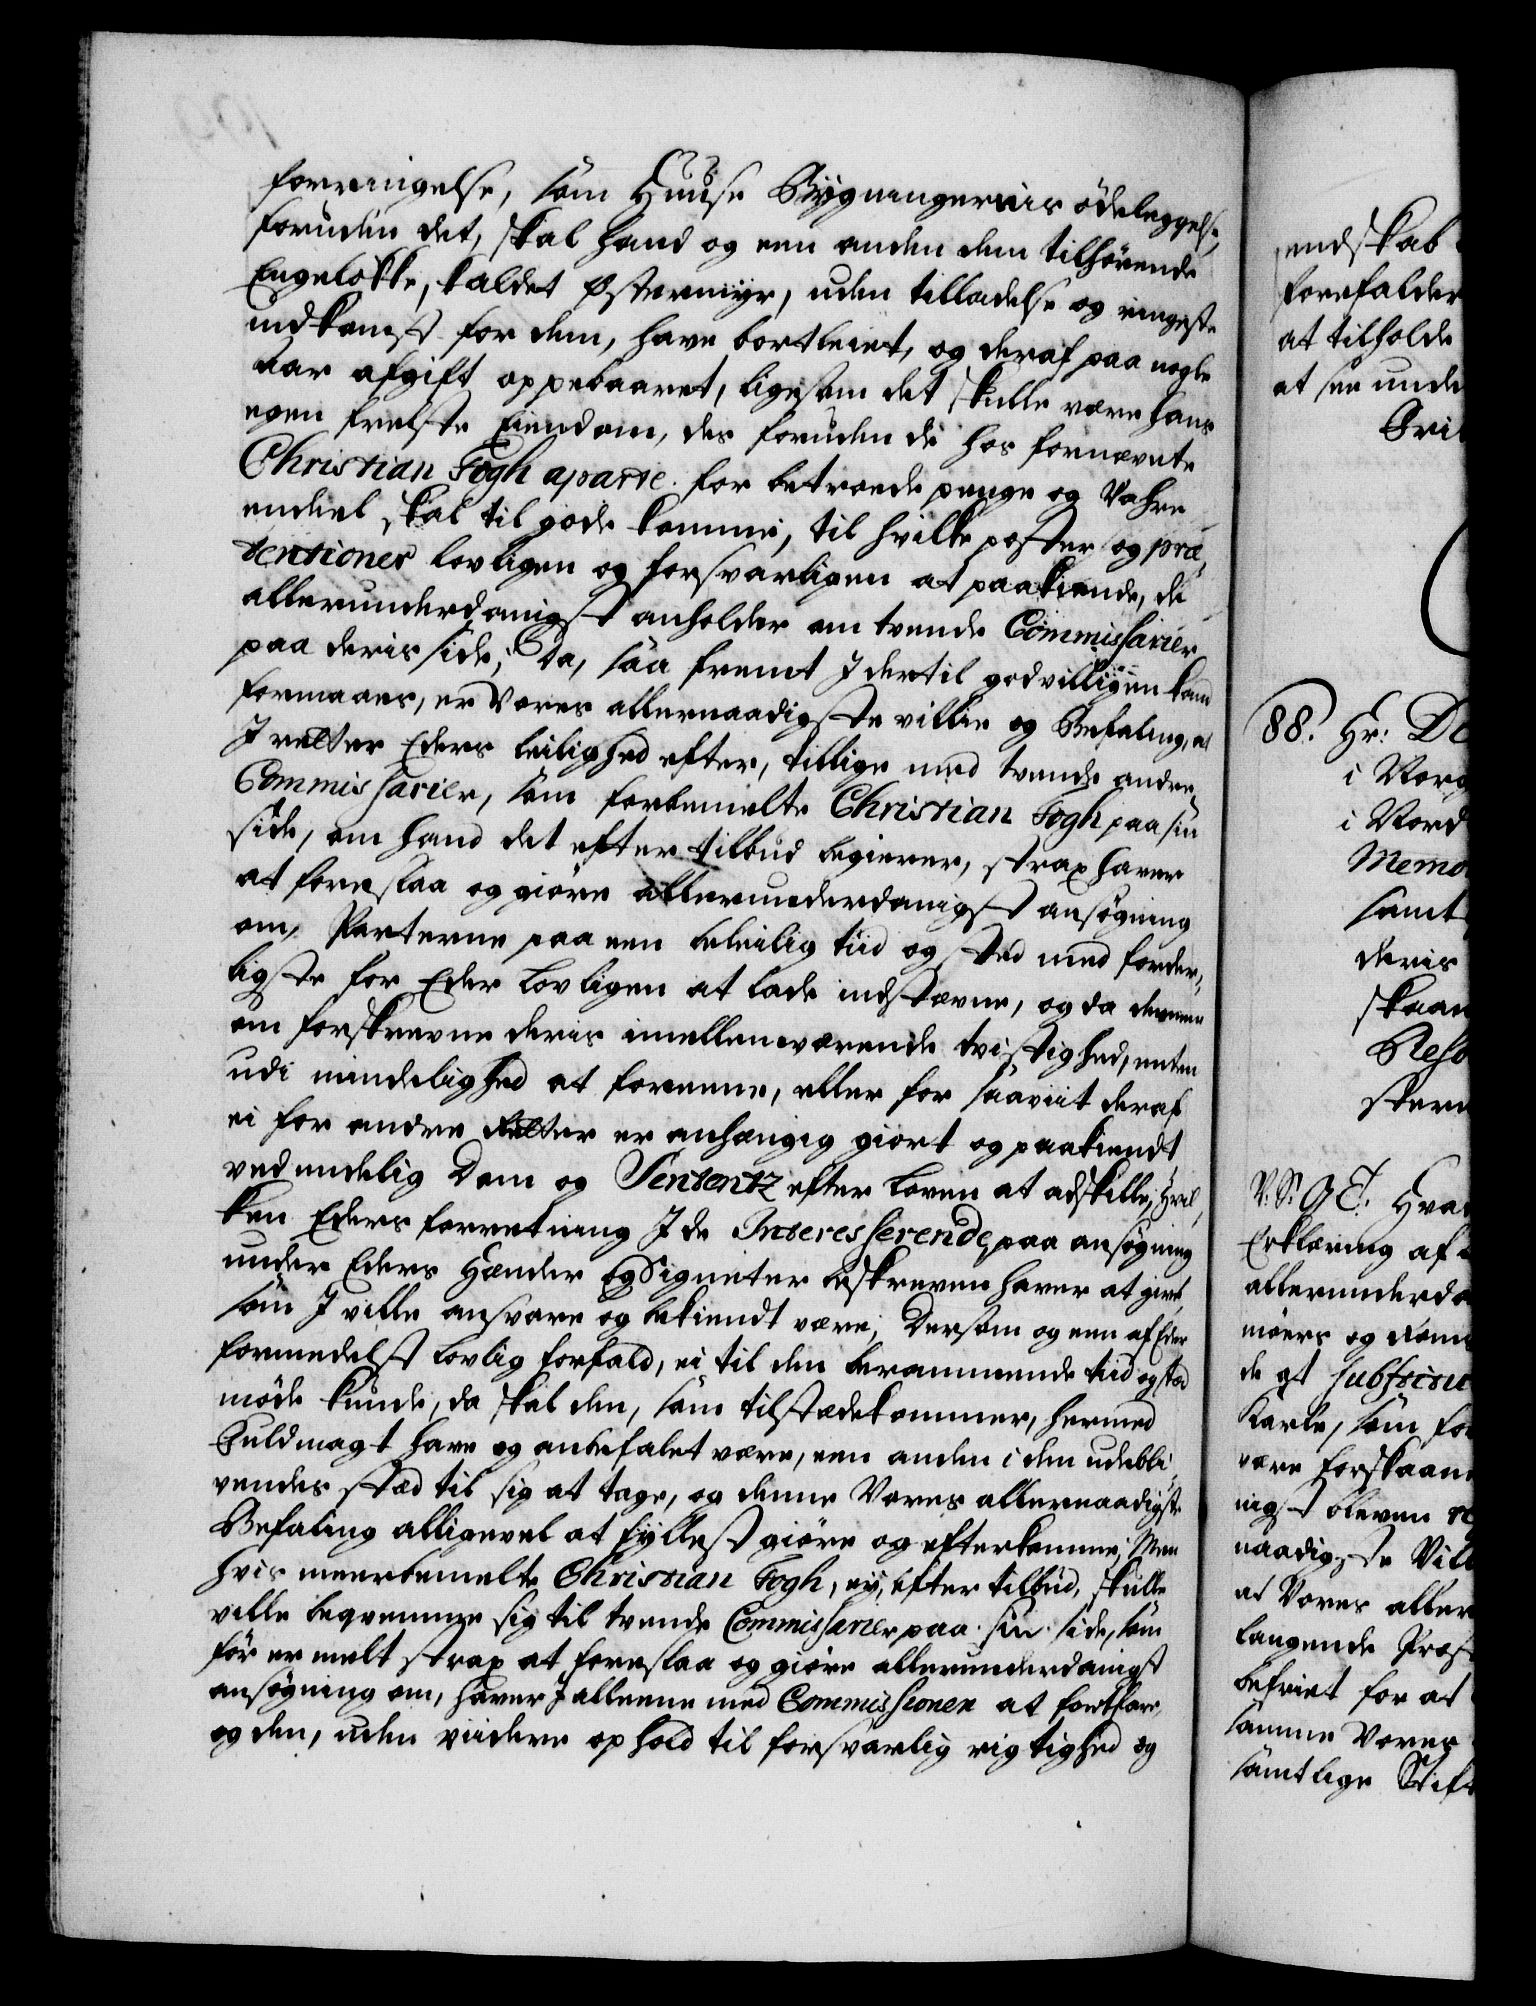 forringelse, som Huuse Bygningernis ödeleggelse,
foruden det, skal hand og een anden dem tilhörende
Engelökke, kaldet Østermyr, uden tilladelse og ringeste
indkomst for dem, have bortleiet, og deraf paa nogle
aar afgift oppebaaret, ligesom det skulle være hans
egen frelste Eiendom, des foruden de hos fornævnte
Christian Fogh aparte for betroede penge og Vahre
endeel skal til gode komme, til hvilke poster og præ„
tentioner lovligen og forsvarligen at paakiende, de
allerunderdanigst anholder om tvende Commissarier
paa deris side; Da, saa fremt I dertil godvilligen kand
formaaes, er Vores allernaadigste villie og Befaling, at
I retter Eders leilighed efter, tillige med tvende andre
Commissarier, som forbemelte Christian Fogh paa sin
side, om hand det efter tilbud begierer, strax haver
at foreslaa og giöre allerunderdanigst ansøgning
om, Parterne paa een beleilig tid og sted med forder„
ligste for Eder lovligen at lade indstævne, og da dennem
om forskrevne deris imellemværende tvistighed, enten
udi mindelighed at foreene, eller for saaviit deraf
ei for andre Retter er anhængig giort og paakiendt
ved endelig Dom og Sententz efter Loven at adskille; Hvil„
ken Eders forretning I de Interesserende, paa ansøgning
under Eders Hænder og Signeter beskreven haver at give,
som I ville ansvare og bekiendt være; Dersom og een af Eder
formedelst lovlig forfald, ei til den berammende tid og sted
möde kunde, da skal den, som tilstædekommer, hermed
Fuldmagt have og anbefalet være, een anden i den udebli„
vendes stæd til sig at tage, og denne Vores allernaadigste
Befaling alligevel at fyllestgiöre og efterkomme; Men
hvis meerbemelte Christian Fogh, ey, efter tilbud, skulle
ville beqvemme sig til tvende Commissarier paa sin side, som
før er melt strax at foreslaa og giöre allerunderdanigst
ansøgning om, haver I alleene med Commissionen at fortfare,
og den, uden viidere ophold til forsvarlig rigtighed og
endskab
forefalder
at tilholde
at see unde
88. Hr: De
i Norg
i Nord
Memo
samt
deris
skaan
Reso
V. S. G. T. Hva
Erklæring af
allerunderda
möers og
de at subsist
Karle, som for
være forskaan
nigst bleven
naadigste Vill
at Vores aller
langende Præst
befriet for at
samme Vores
samtlige Stift